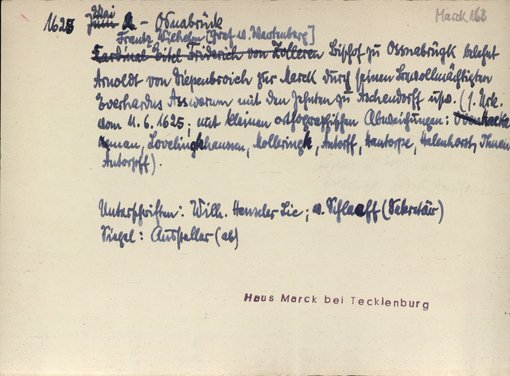 Marck 163
1625 Mai 2. - Osnabrück
Frantz Wilhelm [Graf v. Wartenberg]
Kardinal Eitel Friderich von Zolleren Bischof zu Ossnabrügk belehnt
Arnoldt von Diepenbroich zur Marck durch seinen Bevollmächtigten
Everhardus Asswerum mit den Zehnten zu Aschendorff usw. (s. Urk.
vom 11.6.1625; mit kleinen orthographischen Abweichungen:
Lovelingkhaussen, Molleringk, Antorff, Hantorpe, Halenhorst,
Antorpff).
Unterschriften: Wilh. Henseler Lic; v. Schlaeff (Sekretär)
Siegel: Aussteller (ab)
Haus Marck bei Tecklenburg